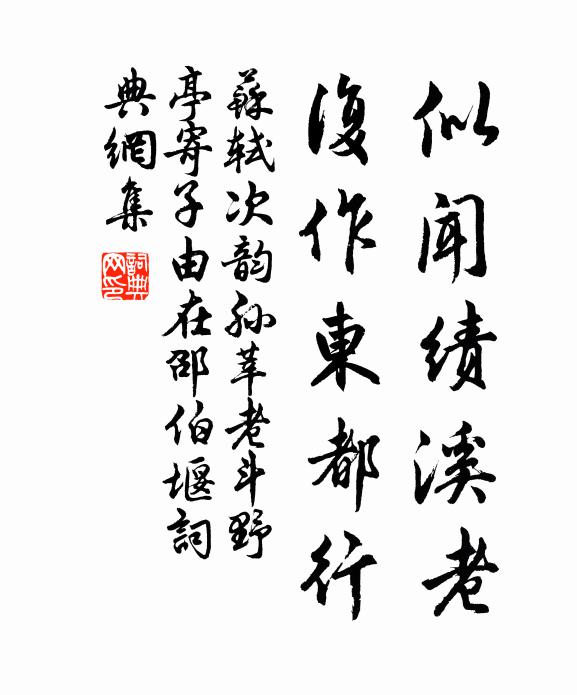 似聞績溪老
復作東都行
蘇軾次韵孫莘老斗野
亭寄子由在邵伯堰詞
典網集
詞典
网印